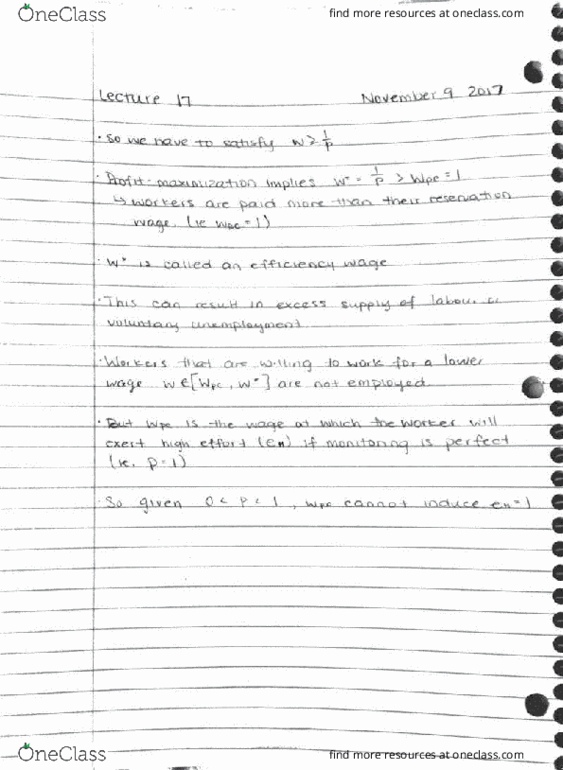 OneClass
find more resources at oneclass.com
Lecture 17 November 9 2017
· So we have to satisfy w ≥ 1/p
· Profit-maximization implies w* = 1/p > wpc = 1
↳ workers are paid more than their reservation
wage. (ie wpc = 1)
· w* is called an efficiency wage
· This can result in excess supply of labour or
voluntary unemployment
· Workers that are willing to work for a lower
wage w ∈ [wpc, w*] are not employed
· But wpc is the wage at which the worker will
exert high effort (eH) if monitoring is perfect
(ie. p = 1)
· So given 0 < p < 1, wpc cannot induce eH = 1
OneClass
find more resources at oneclass.com